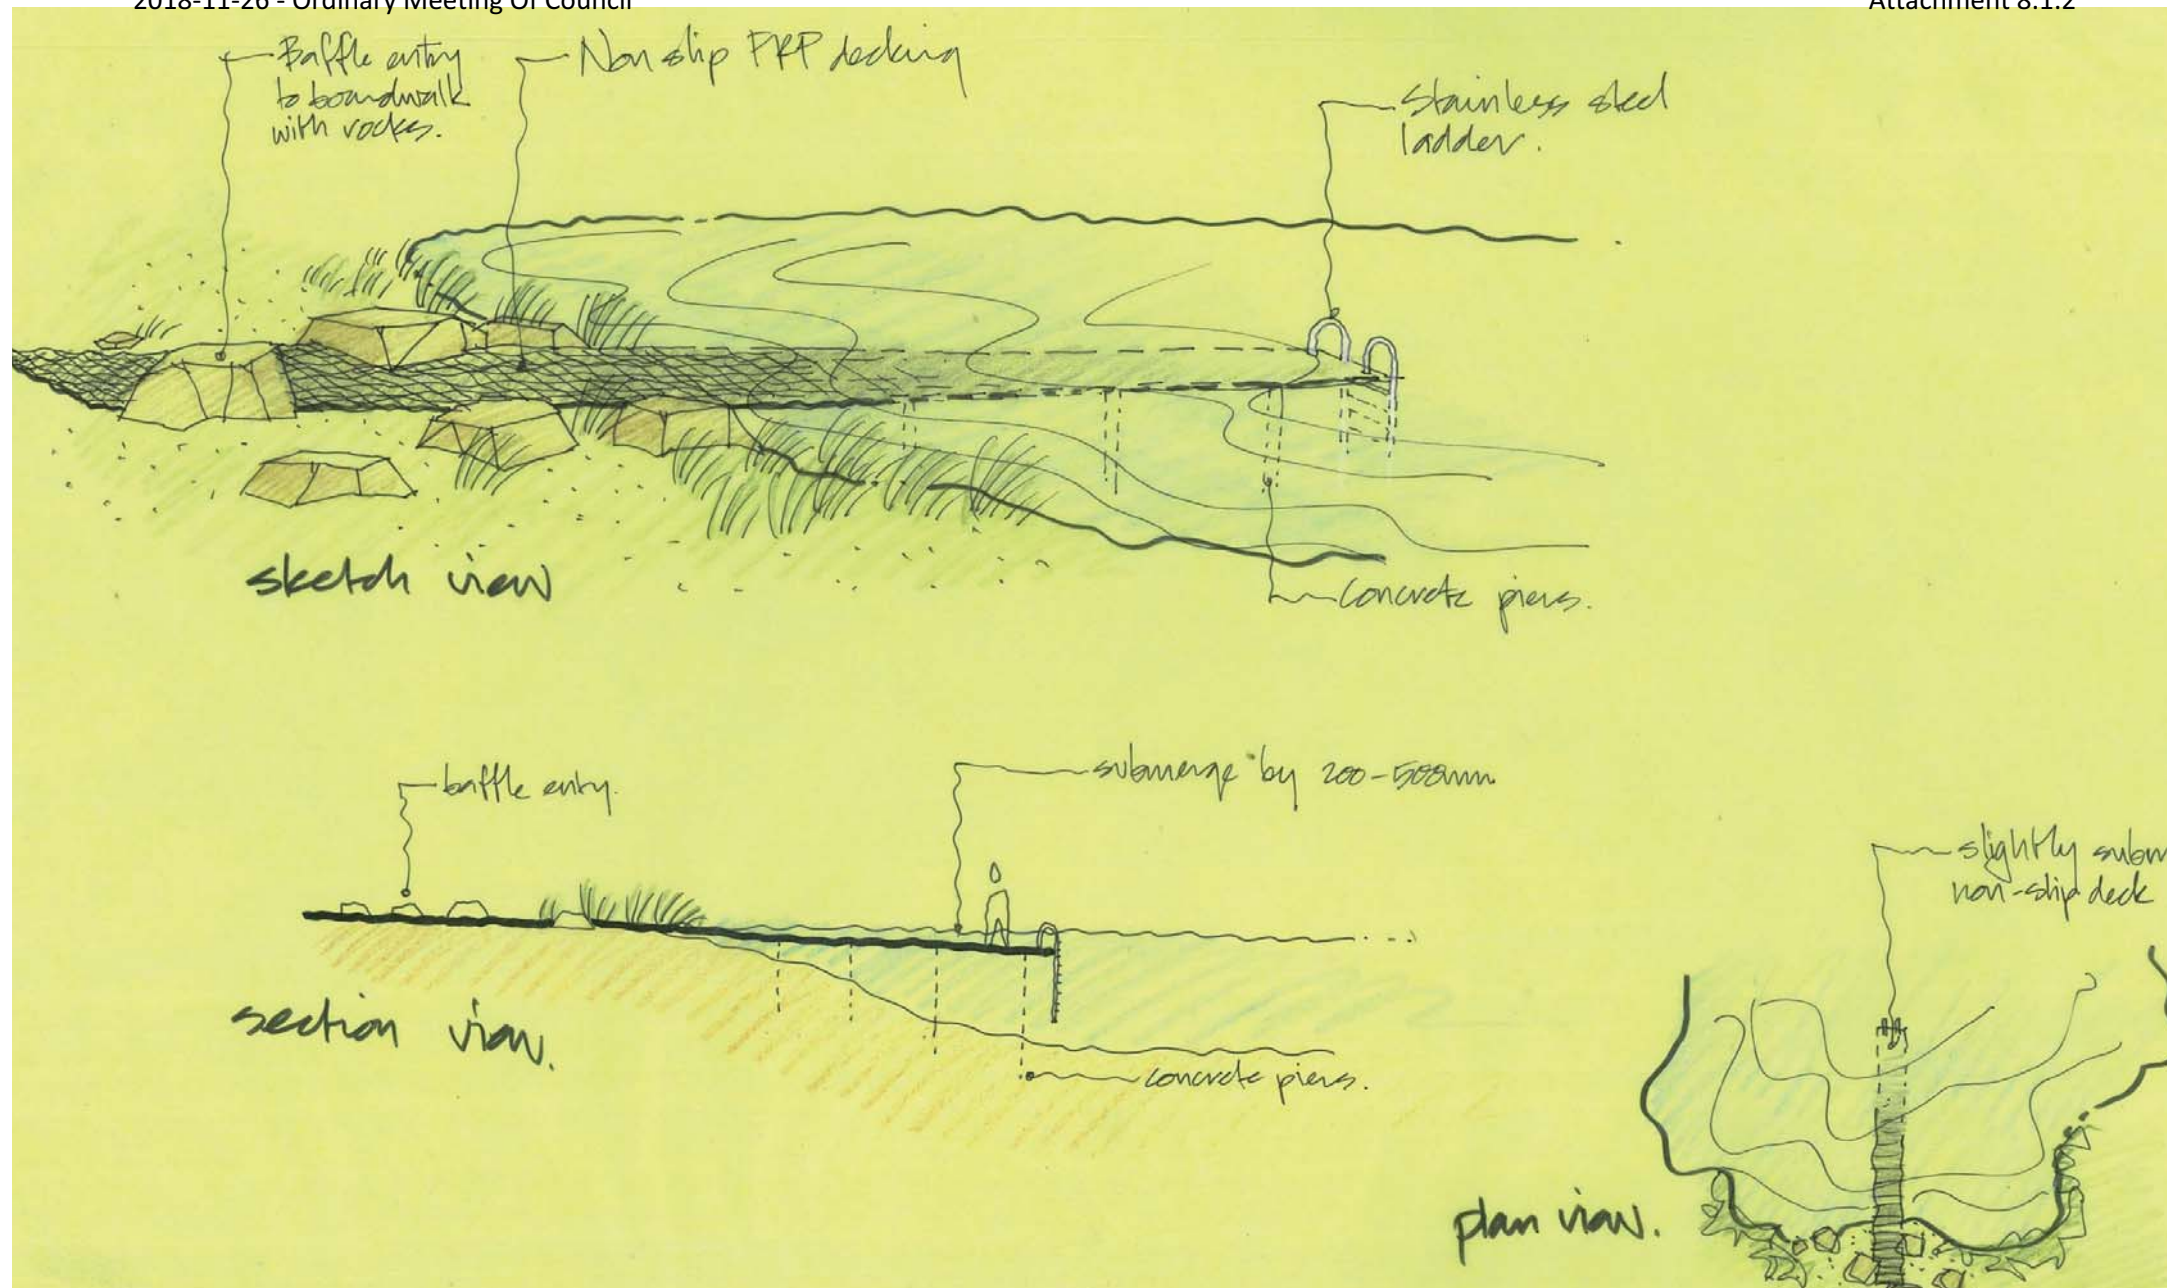 2018-11-26 - Ordinary Meeting Of Council
Attachment 8.1.2
Baffle entry
to boardwalk
with rocks.
Non slip FRP decking
Stainless steel
ladder.
sketch view
concrete piers.
baffle entry.
submerge by 200-500mm
section view.
concrete piers.
slightly subm
non-slip deck
plan view.